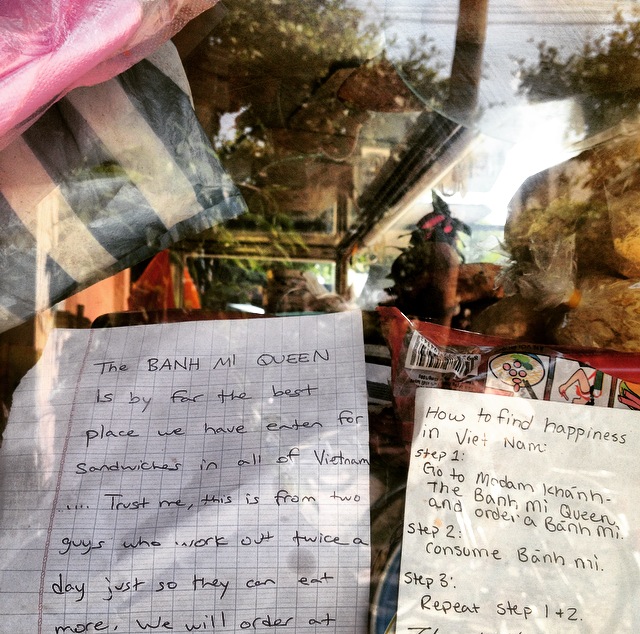 The BANH MI QUEEN
is by far the best
place we have eaten for
sandwiches in all of Vietnam
.... Trust me, this is from two
guys who work out twice a
day just so they can eat
more. We will order at
How to find happiness
in Viet Nam:
Step 1:
Go to Madam Khánh-
The Banh mi Queen,
and order a Bánh mì.
Step 2:
Consume Bánh mì.
Step 3:
Repeat step 1+2.